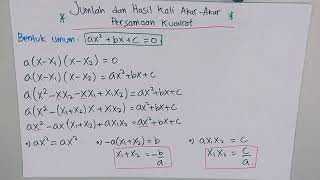 * Jumlah dan Hasil Kali Akar-Akar *
Persamaan Kuadrat
Bentuk umum: ax² + bx + c = 0
a(x-x₁)(x-x₂) = 0
a(x-x₁)(x-x₂) = ax²+bx+c
a(x²-xx₂-xx₁+x₁x₂) = ax²+bx+c
a(x²-(x₁+x₂)x+x₁x₂) = ax²+bx+c
ax²-a(x₁+x₂)+ax₁x₂ = ax²+bx+c
•) ax² = ax² •) -a(x₁+x₂) = b •) ax₁x₂ = c
x₁+x₂ = -b/a x₁x₂ = c/a